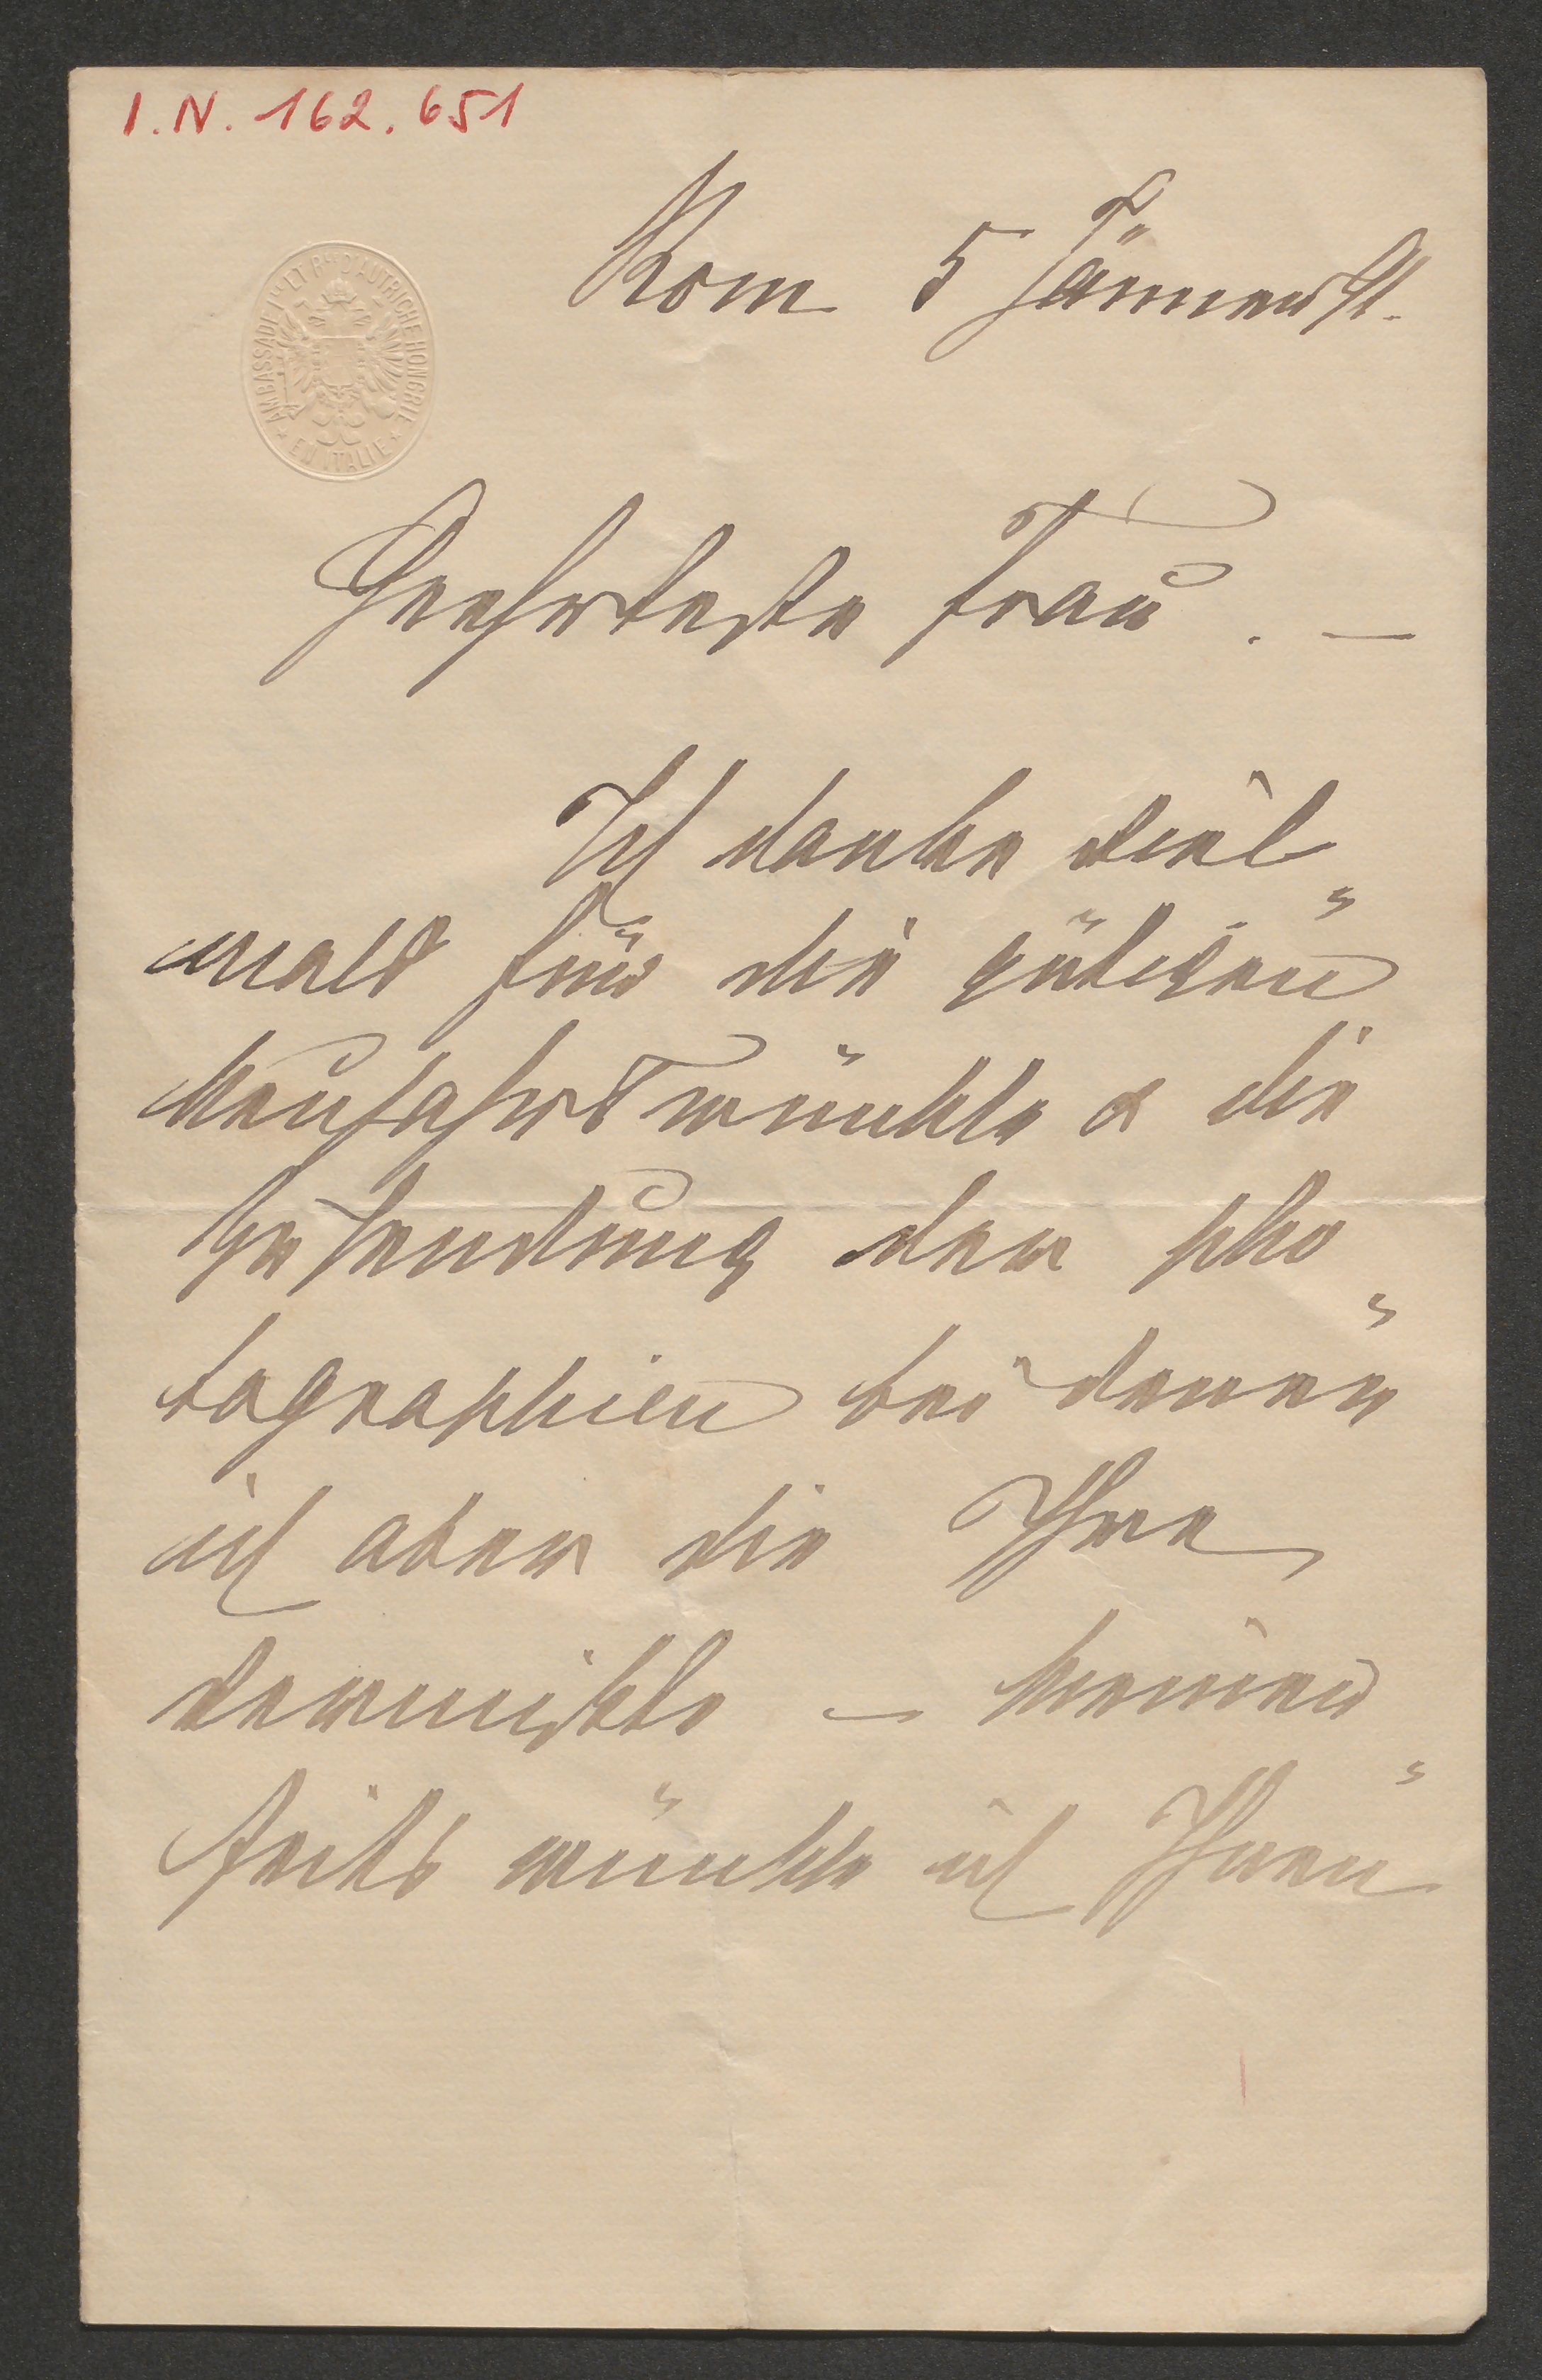 I.N. 162.651
AMBASSADE Ile ET Rle D'AUTRICHE HONGRIE
* EN ITALIE *
Rom 5 Jänner
Geehrteste Frau. —
Ich danke viel„
mals für die gütigen
Neujahrswünsche & die
Zusendung der pho„
tographien bei denen
ich aber die Ihre
vermißte – meiner„
seits wünsche ich Ihnen